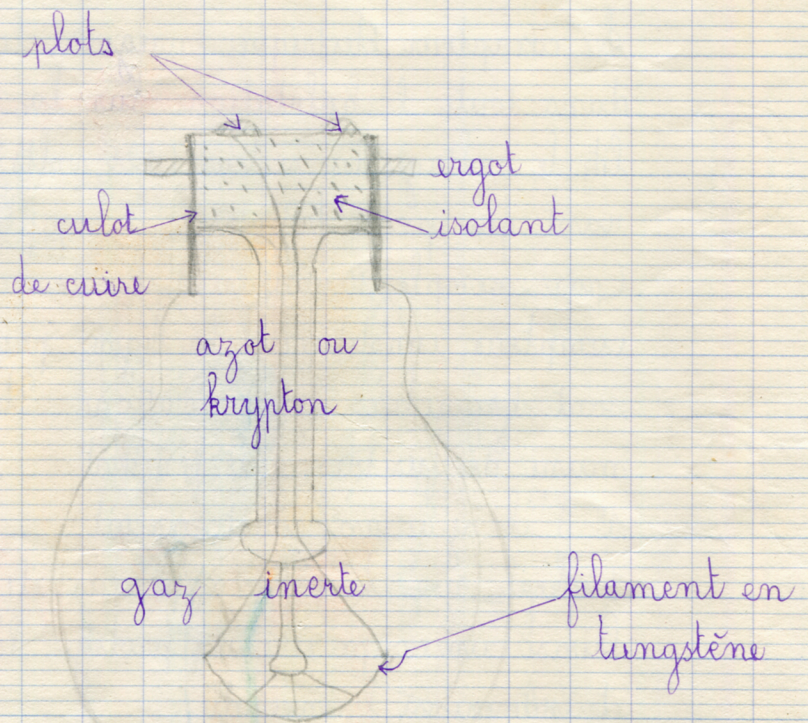 plots
ergot
culot
isolant
de cuire
azot ou
krypton
gaz inerte
filament en
tungstène